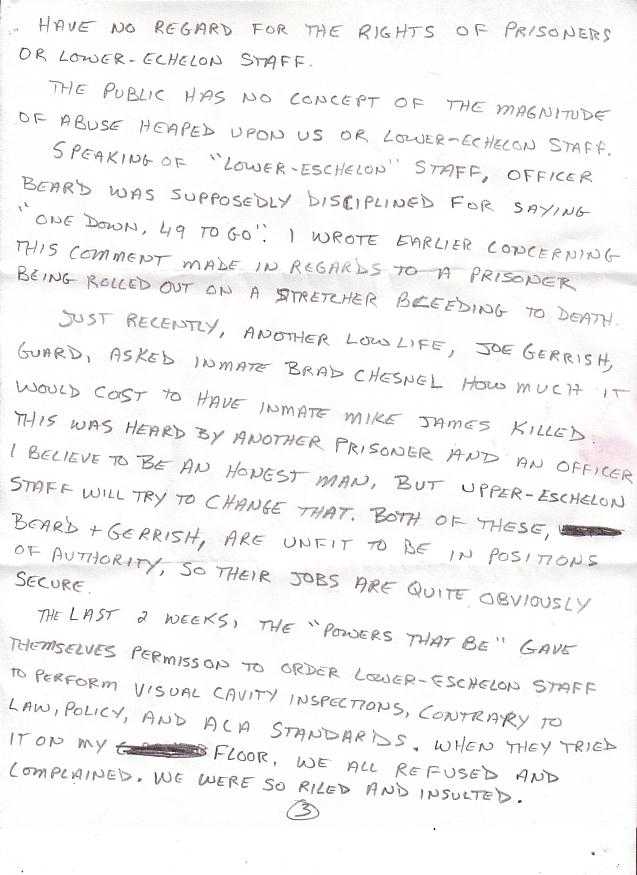 HAVE NO REGARD FOR THE RIGHTS OF PRISONERS
OR LOWER-ECHELON STAFF.
THE PUBLIC HAS NO CONCEPT OF THE MAGNITUDE
OF ABUSE HEAPED UPON US OR LOWER-ECHELON STAFF.
SPEAKING OF "LOWER-ESCHELON" STAFF, OFFICER
BEARD WAS SUPPOSEDLY DISCIPLINED FOR SAYING
"ONE DOWN, 49 TO GO". I WROTE EARLIER CONCERNING
THIS COMMENT MADE IN REGARDS TO A PRISONER
BEING ROLLED OUT ON A STRETCHER BLEEDING TO DEATH.
JUST RECENTLY, ANOTHER LOW LIFE, JOE GERRISH,
GUARD, ASKED INMATE BRAD CHESNEL HOW MUCH IT
WOULD COST TO HAVE INMATE MIKE JAMES KILLED.
THIS WAS HEARD BY ANOTHER PRISONER AND AN OFFICER
I BELIEVE TO BE AN HONEST MAN, BUT UPPER-ESCHELON
STAFF WILL TRY TO CHANGE THAT. BOTH OF THESE,
BEARD + GERRISH, ARE UNFIT TO BE IN POSITIONS
OF AUTHORITY, SO THEIR JOBS ARE QUITE OBVIOUSLY
SECURE.
THE LAST 2 WEEKS, THE "POWERS THAT BE" GAVE
THEMSELVES PERMISSON TO ORDER LOWER-ESCHELON STAFF
TO PERFORM VISUAL CAVITY INSPECTIONS, CONTRARY TO
LAW, POLICY, AND ACA STANDARDS. WHEN THEY TRIED
IT ON MY FLOOR, WE ALL REFUSED AND
COMPLAINED. WE WERE SO RILED AND INSULTED.
3